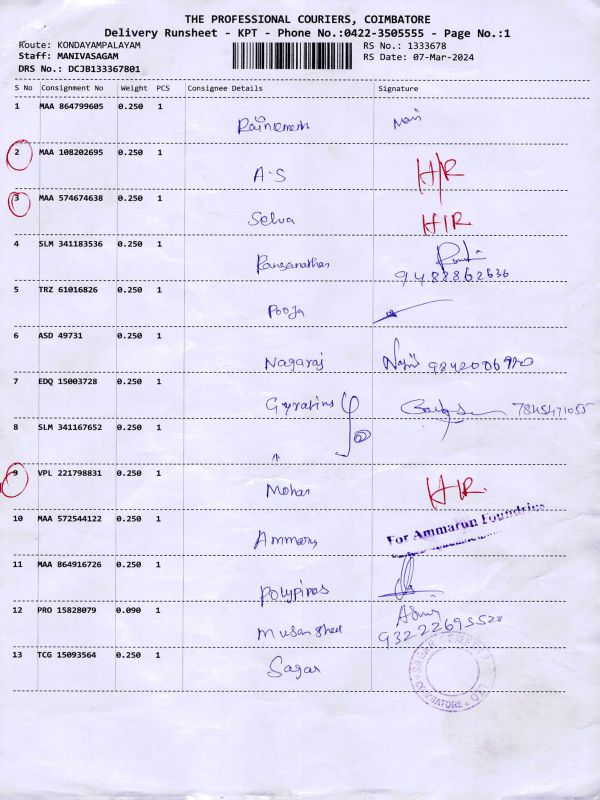 THE PROFESSIONAL COURIERS, COIMBATORE
Delivery Runsheet - KPT - Phone No.:0422-3505555 - Page No.:1
Route: KONDAYAMPALAYAM RS No.: 1333678
Staff: MANIVASAGAM RS Date: 07-Mar-2024
DRS No.: DCJB133367801
S No Consignment No Weight PCS Consignee Details Signature
1 MAA 864799605 0.250 1
2 MAA 108202695 0.250 1
A-S H/R
3 MAA 574674638 0.250 1
Selva H/R
4 SLM 341183536 0.250 1
Ranganathan
9488862636
5 TRZ 61016826 0.250 1
Pooja
6 ASD 49731 0.250 1
Nagaraj
7 EDQ 15003728 0.250 1
7845471055
8 SLM 341167652 0.250 1
②
9 VPL 221798831 0.250 1
Mohan H/R
10 MAA 572544122 0.250 1
For Ammarun Foundries
11 MAA 864916726 0.250 1
Polypipes
12 PRO 15828079 0.090 1
13 TCG 15093564 0.250 1
Sagar
COIMBATORE